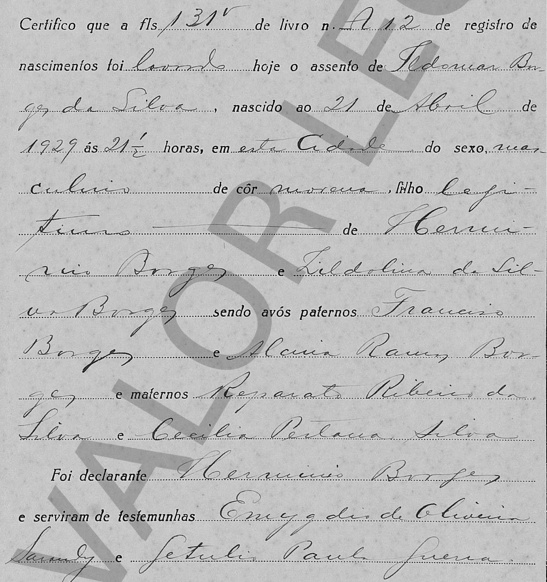 Certifico que a fls 131v de livro n. A 12 de registro de
nascimentos foi lavrado hoje o assento de Ildomar Bor-
ges da Silva, nascido ao 21 de Abril de
1929 ás 21½ horas, em esta Cidade do sexo, mas
culino de côr morena, filho legi-
timo de Hermi-
nio Borges e Zildolina da Sil-
va Borges sendo avós paternos Francisco
Borges e Maria Ramos Bor-
ges e maternos Reparato Ribeiro da
Silva e Cecilia Pestana Silva
Foi declarante Herminio Borges
e serviram de testemunhas Emygdio de Oliveira
e Getulio Paula Guerra
VALOR LEG